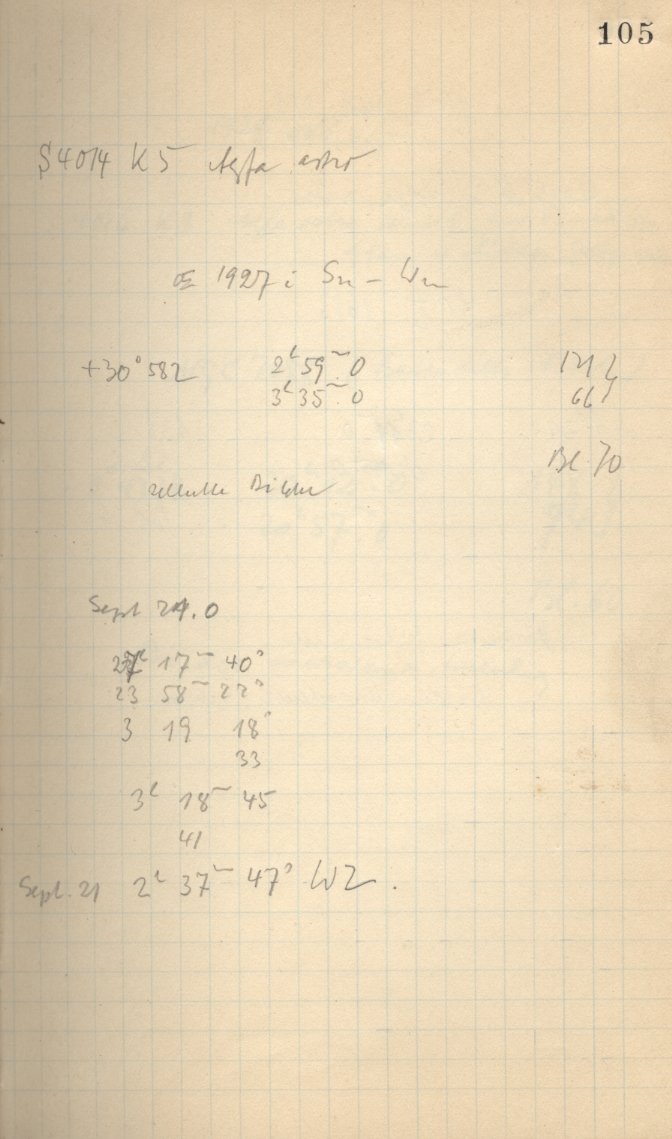 105
S4014 K5 Agfa astro
1927 i Su - Wu
+30°582 2h 59m 0
3h 35m 0
Bl. 70
Bilder
Sept 24.0
27h 17m 40s
23 58m 22s
3 19 18s
33
3h 18m 45
41
Sept. 21 2h 37m 47s WZ.